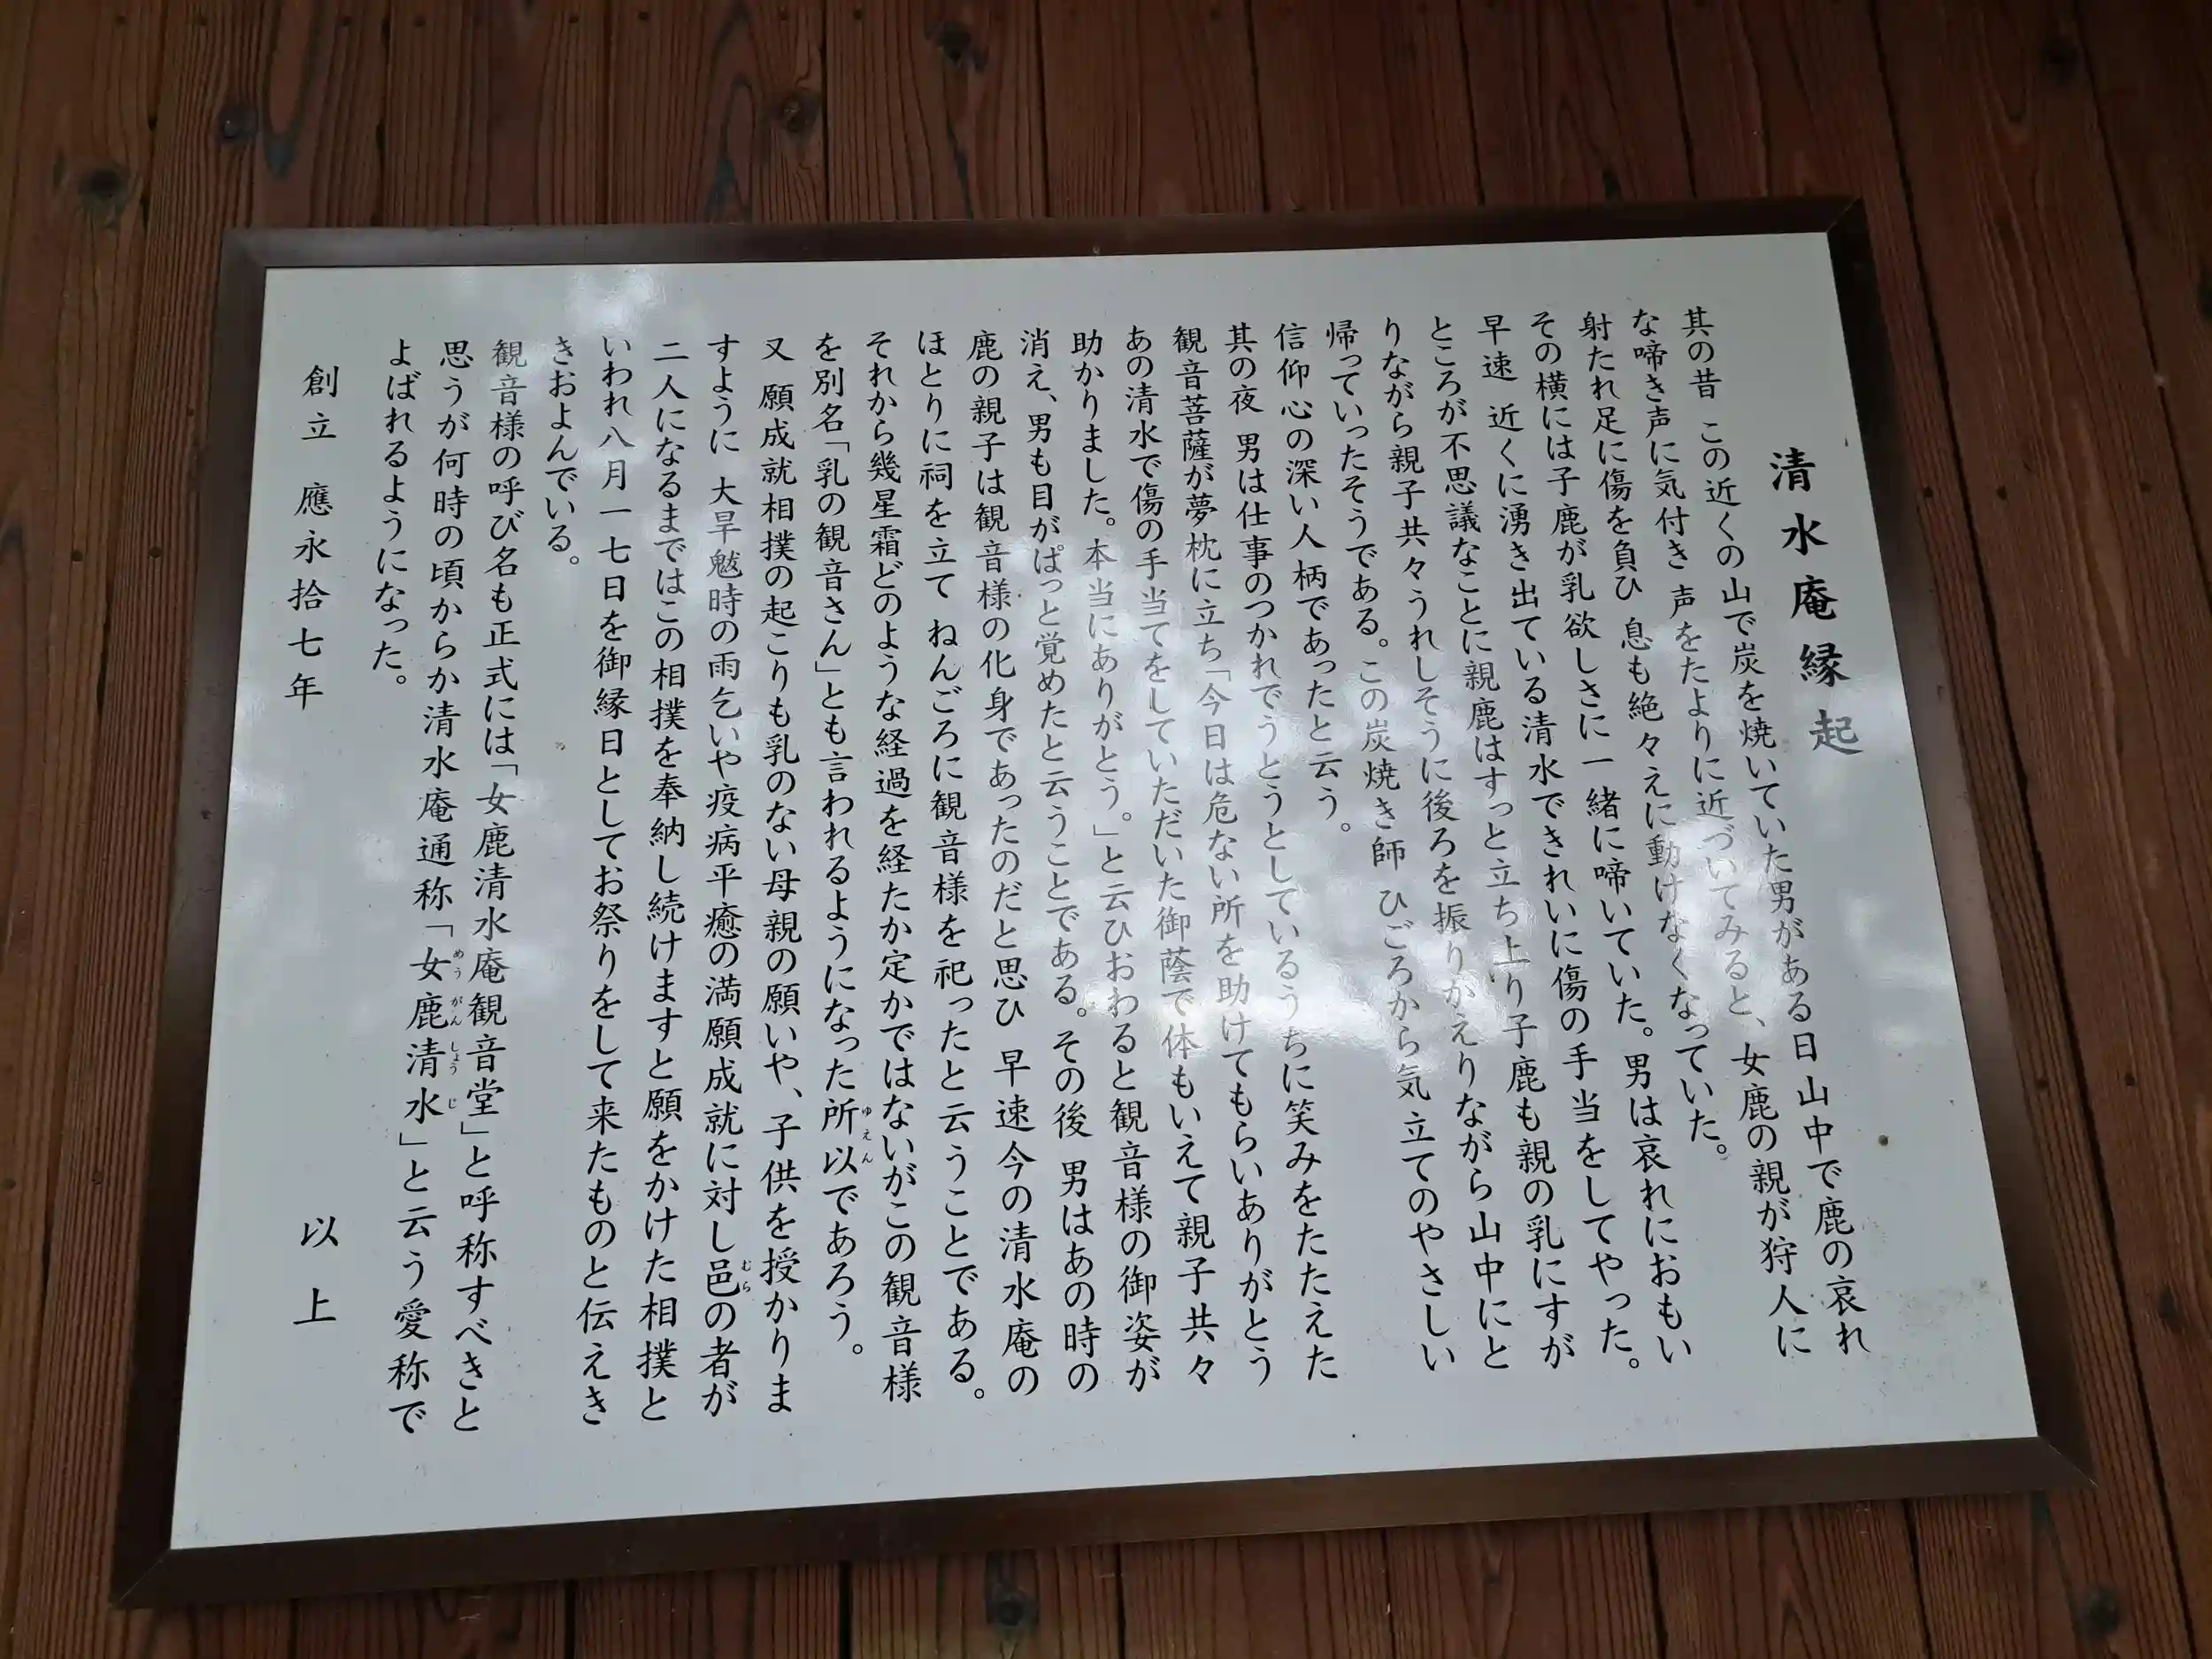 清水庵縁起
其の昔 この近くの山で炭を焼いていた男がある日山中で鹿の哀れ
な啼き声に気付き 声をたよりに近づいてみると、女鹿の親が狩人に
射たれ足に傷を負ひ 息も絶々えに動けなくなっていた。
その横には子鹿が乳欲しさに一緒に啼いていた。男は哀れにおもい
早速 近くに湧き出ている清水できれいに傷の手当をしてやった。
ところが不思議なことに親鹿はすっと立ち上り子鹿も親の乳にすが
りながら親子共々うれしそうに後ろを振りかえりながら山中にと
帰っていったそうである。この炭焼き師 ひごろから気立てのやさしい
信仰心の深い人柄であったと云う。
其の夜 男は仕事のつかれでうとうとしているうちに笑みをたたえた
観音菩薩が夢枕に立ち「今日は危ない所を助けてもらいありがとう
あの清水で傷の手当てをしていただいた御蔭で体もいえて親子共々
助かりました。本当にありがとう。」と云ひおわると観音様の御姿が
消え、男も目がぱっと覚めたと云うことである。その後 男はあの時の
鹿の親子は観音様の化身であったのだと思ひ 早速今の清水庵の
ほとりに祠を立て ねんごろに観音様を祀ったと云うことである。
それから幾星霜どのような経過を経たか定かではないがこの観音様
を別名「乳の観音さん」とも言われるようになった所以であろう。
又 願成就相撲の起こりも乳のない母親の願いや、子供を授かりま
すように 大旱魃時の雨乞いや疫病平癒の満願成就に対し邑の者が
二人になるまではこの相撲を奉納し続けますと願をかけた相撲と
いわれ八月一七日を御縁日としてお祭りをして来たものと伝えき
きおよんでいる。
観音様の呼び名も正式には「女鹿清水庵観音堂」と呼称すべきと
思うが何時の頃からか清水庵通称「女鹿清水」と云う愛称で
よばれるようになった。
創立 應永拾七年 以上